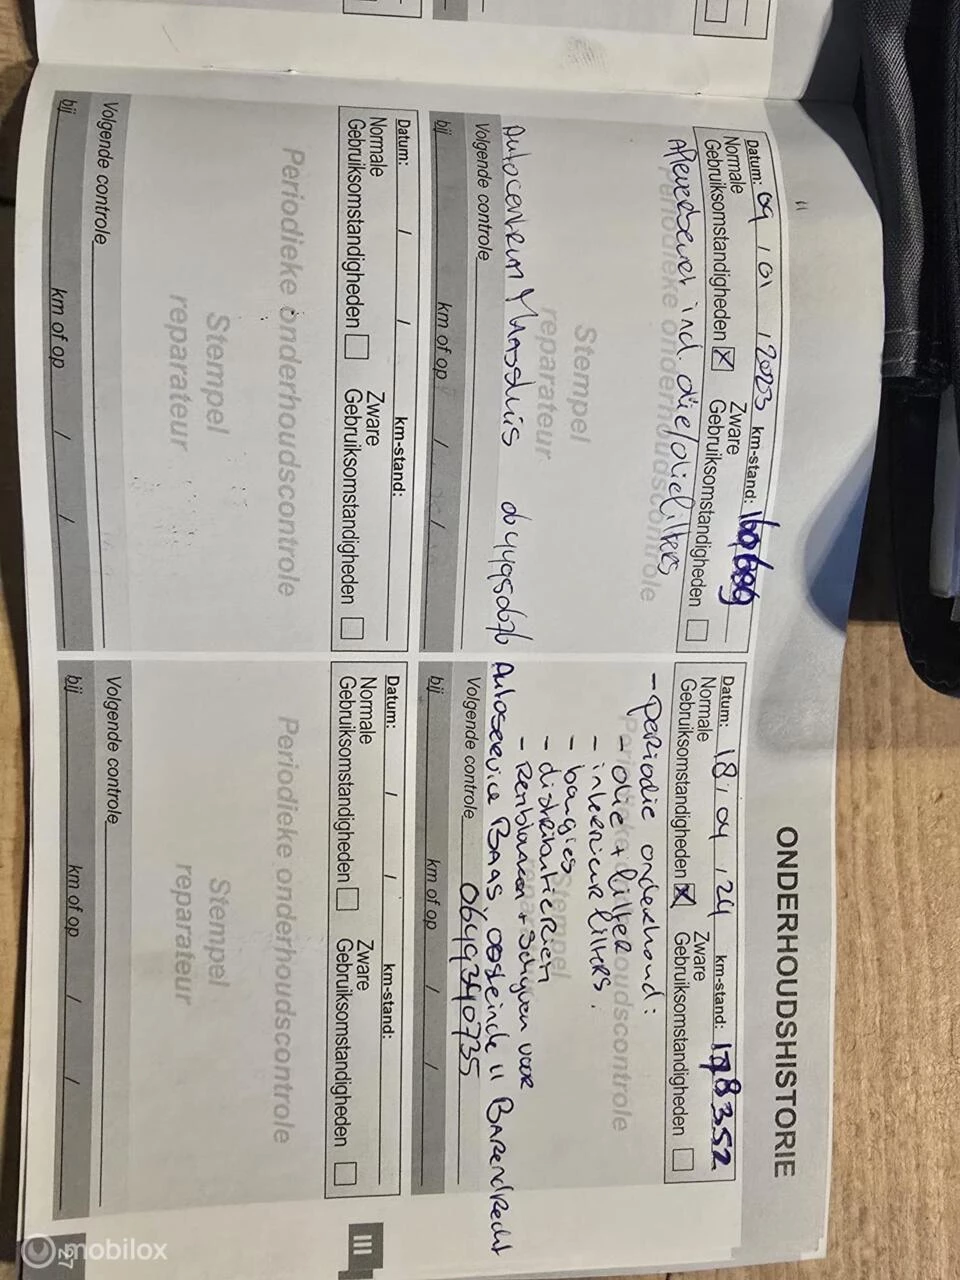 ONDERHOUDSHISTORIE
Datum: 09 / 01 / 2023 km-stand:
Normale Zware
Gebruiksomstandigheden ☒ Gebruiksomstandigheden ☐
Periodieke onderhoudscontrole
Afleverbeurt incl. olie/oliefilters
Stempel
reparateur
Autocentrum Maassluis
Volgende controle
bij km of op / /
Datum: 18 / 04 / 24 km-stand: 178352
Normale Zware
Gebruiksomstandigheden ☒ Gebruiksomstandigheden ☐
- Periodic onderhoud:
Periodieke onderhoudscontrole
- olie + filter
- interieurfilters.
- bougies
Stempel
- distributieriem
reparateur
- Remblokken + schijven voor
Autoservice BAAS oosteinde 11 BARendRecht
Volgende controle 0649340735
bij km of op / /
Datum: / / km-stand:
Normale Zware
Gebruiksomstandigheden ☐ Gebruiksomstandigheden ☐
Periodieke onderhoudscontrole
Stempel
reparateur
Volgende controle
bij km of op / /
Datum: / / km-stand:
Normale Zware
Gebruiksomstandigheden ☐ Gebruiksomstandigheden ☐
Periodieke onderhoudscontrole
Stempel
reparateur
Volgende controle
bij km of op / /
III
27
mobilox